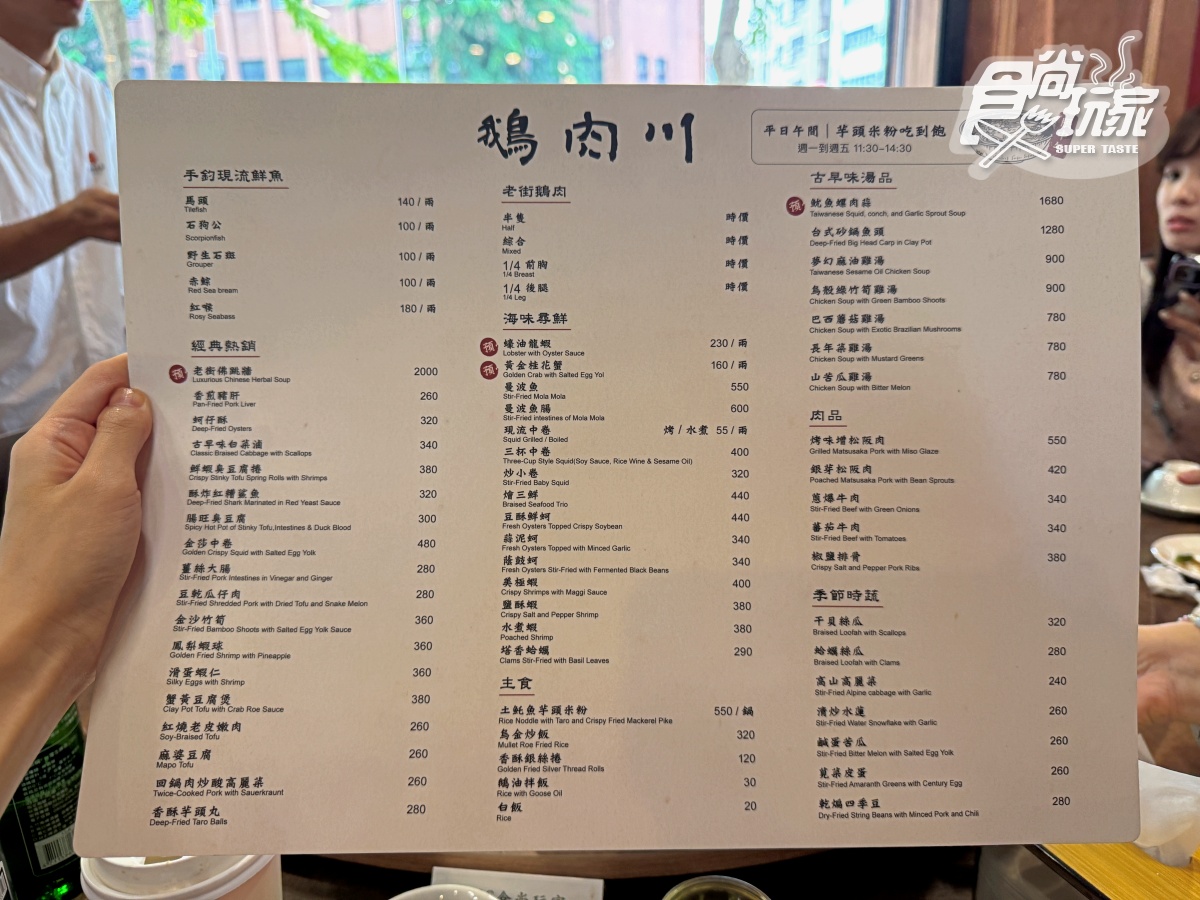 鵝肉川
平日午間｜芋頭米粉吃到飽
週一到週五 11:30-14:30
食尚玩家
SUPER TASTE
手釣現流鮮魚
馬頭 140 / 兩
Tilefish
石狗公 100 / 兩
Scorpionfish
野生石斑 100 / 兩
Grouper
赤鯮 100 / 兩
Red Sea bream
紅喉 180 / 兩
Rosy Seabass
經典熱銷
預 老街佛跳牆 2000
Luxurious Chinese Herbal Soup
香煎豬肝 260
Pan-Fried Pork Liver
蚵仔酥 320
Deep-Fried Oysters
古早味白菜滷 340
Classic Braised Cabbage with Scallops
鮮蝦臭豆腐捲 380
Crispy Stinky Tofu Spring Rolls with Shrimps
酥炸紅糟鯊魚 320
Deep-Fried Shark Marinated in Red Yeast Sauce
腸旺臭豆腐 300
Spicy Hot Pot of Stinky Tofu,Intestines & Duck Blood
金莎中卷 480
Golden Crispy Squid with Salted Egg Yolk
薑絲大腸 280
Stir-Fried Pork Intestines in Vinegar and Ginger
豆乾瓜仔肉 280
Stir-Fried Shredded Pork with Dried Tofu and Snake Melon
金沙竹筍 360
Stir-Fried Bamboo Shoots with Salted Egg Yolk Sauce
鳳梨蝦球 360
Golden Fried Shrimp with Pineapple
滑蛋蝦仁 360
Silky Eggs with Shrimp
蟹黃豆腐煲 380
Clay Pot Tofu with Crab Roe Sauce
紅燒老皮嫩肉 260
Soy-Braised Tofu
麻婆豆腐 260
Mapo Tofu
回鍋肉炒酸高麗菜 260
Twice-Cooked Pork with Sauerkraunt
香酥芋頭丸 280
Deep-Fried Taro Balls
老街鵝肉
半隻 時價
Half
綜合 時價
Mixed
1/4 前胸 時價
1/4 Breast
1/4 後腿 時價
1/4 Leg
海味尋鮮
預 蠔油龍蝦 230 / 兩
Lobster with Oyster Sauce
預 黃金桂花蟹 160 / 兩
Golden Crab with Salted Egg Yol
曼波魚 550
Stir-Fried Mola Mola
曼波魚腸 600
Stir-Fried intestines of Mola Mola
現流中卷 烤 / 水煮 55 / 兩
Squid Grilled / Boiled
三杯中卷 400
Three-Cup Style Squid(Soy Sauce, Rice Wine & Sesame Oil)
炒小卷 320
Stir-Fried Baby Squid
燴三鮮 440
Braised Seafood Trio
豆酥鮮蚵 440
Fresh Oysters Topped Crispy Soybean
蒜泥蚵 340
Fresh Oysters Topped with Minced Garlic
蔭鼓蚵 340
Fresh Oysters Stir-Fried with Fermented Black Beans
美極蝦 400
Crispy Shrimps with Maggi Sauce
鹽酥蝦 380
Crispy Salt and Pepper Shrimp
水煮蝦 380
Poached Shrimp
塔香蛤蠣 290
Clams Stir-Fried with Basil Leaves
主食
土魠魚芋頭米粉 550 / 鍋
Rice Noddle with Taro and Crispy Fried Mackerel Pike
烏金炒飯 320
Mullet Roe Fried Rice
香酥銀絲捲 120
Golden Fried Silver Thread Rolls
鵝油拌飯 30
Rice with Goose Oil
白飯 20
Rice
古早味湯品
預 魷魚螺肉蒜 1680
Taiwanese Squid, conch, and Garlic Sprout Soup
台式砂鍋魚頭 1280
Deep-Fried Big Head Carp in Clay Pot
夢幻麻油雞湯 900
Taiwanese Sesame Oil Chicken Soup
烏殼綠竹筍雞湯 900
Chicken Soup with Green Bamboo Shoots
巴西蘑菇雞湯 780
Chicken Soup with Exotic Brazilian Mushrooms
長年菜雞湯 780
Chicken Soup with Mustard Greens
山苦瓜雞湯 780
Chicken Soup with Bitter Melon
肉品
烤味增松阪肉 550
Grilled Matsusaka Pork with Miso Glaze
銀芽松阪肉 420
Poached Matsusaka Pork with Bean Sprouts
蔥爆牛肉 340
Stir-Fried Beef with Green Onions
蕃茄牛肉 340
Stir-Fried Beef with Tomatoes
椒鹽排骨 380
Crispy Salt and Pepper Pork Ribs
季節時蔬
干貝絲瓜 320
Braised Loofah with Scallops
蛤蠣絲瓜 280
Braised Loofah with Clams
高山高麗菜 240
Stir-Fried Alpine cabbage with Garlic
清炒水蓮 260
Stir-Fried Water Snowflake with Garlic
鹹蛋苦瓜 260
Stir-Fried Bitter Melon with Salted Egg Yolk
莧菜皮蛋 260
Stir-Fried Amaranth Greens with Century Egg
乾煸四季豆 280
Dry-Fried String Beans with Minced Pork and Chili